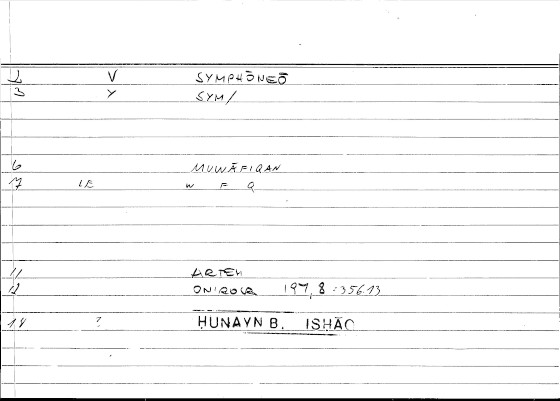 2 V SYMPHŌNEŌ
3 Y SYM/
6 MUWĀFIQAN
7 w F Q
11 ARTEM
12 ONIROCR 197,8 = 356,13
14 ? ḤUNAYN B. ISḤĀQ